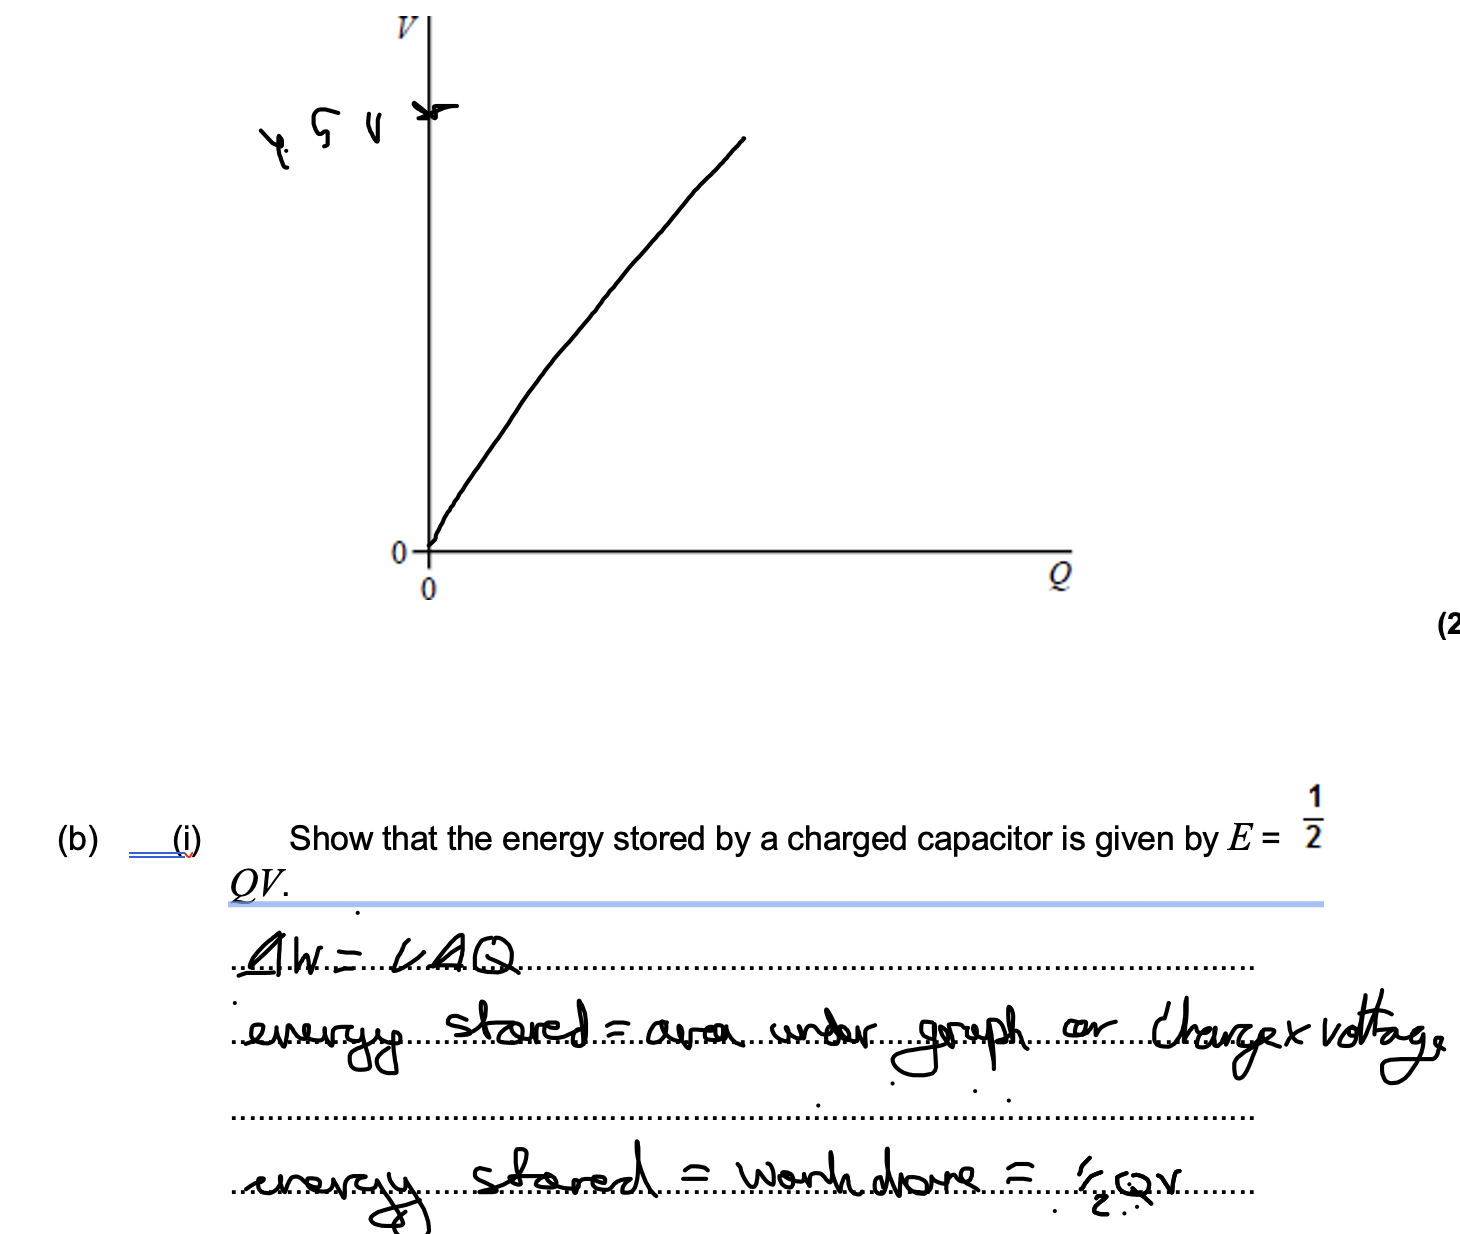 V
1.5 V
0
0
Q
(2
(b) (i) Show that the energy stored by a charged capacitor is given by E = 1/2
QV.
ΔW = VΔQ
energy stored = area under graph or charge x voltage
energy stored = work done = 1/2 QV